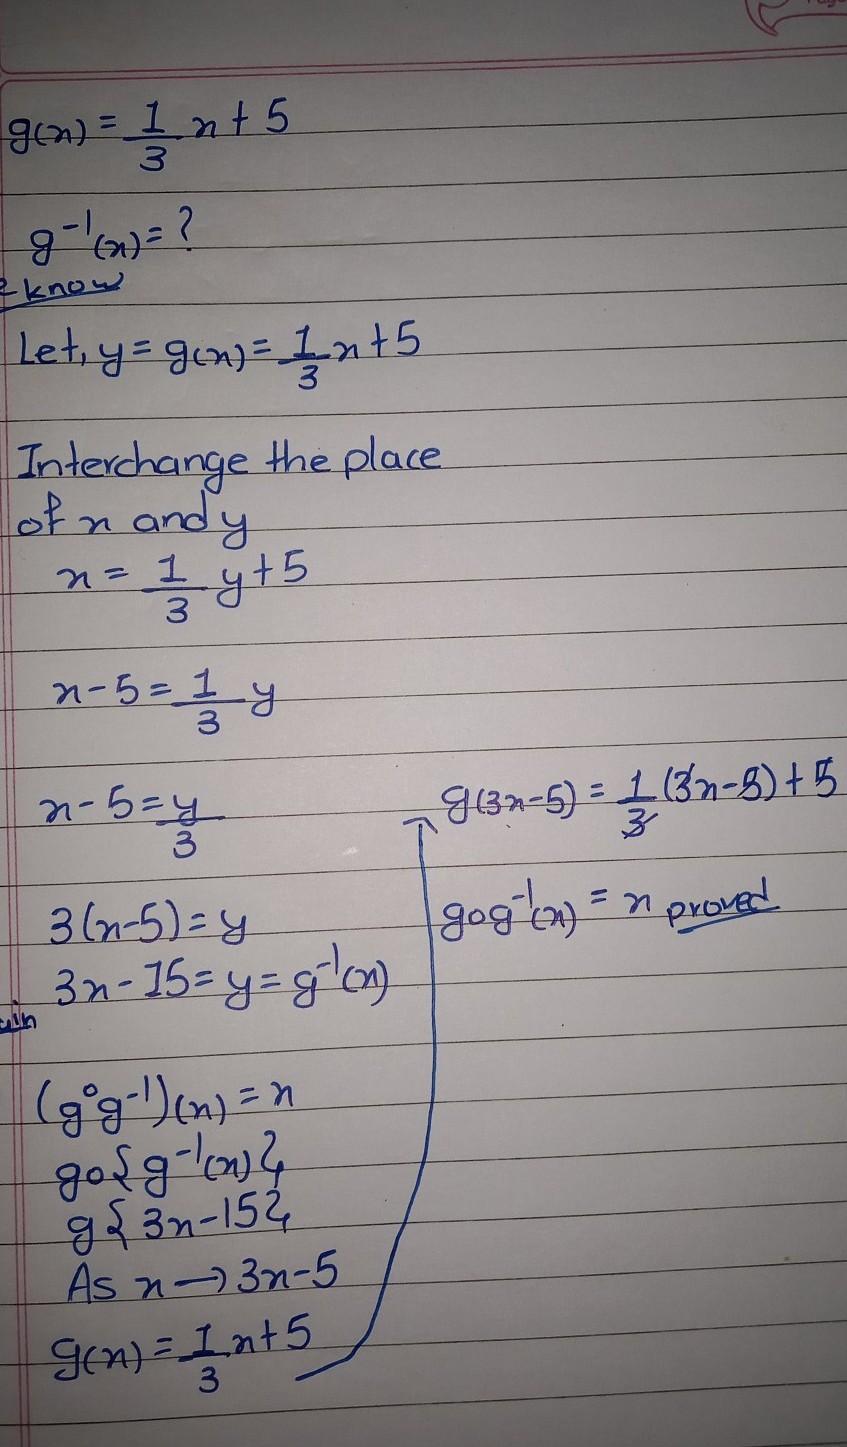 g(x) = 1/3 x + 5
g⁻¹(x) = ?
know
Let, y = g(x) = 1/3 x + 5
Interchange the place
of x and y
x = 1/3 y + 5
x - 5 = 1/3 y
x - 5 = y/3
3(x-5) = y
3x - 15 = y = g⁻¹(x)
(gog⁻¹)(x) = x
go{g⁻¹(x)}
g{3x-15}
As x → 3x-5
g(x) = 1/3 x + 5
g(3x-5) = 1/3 (3x-5) + 5
gog⁻¹(x) = x proved